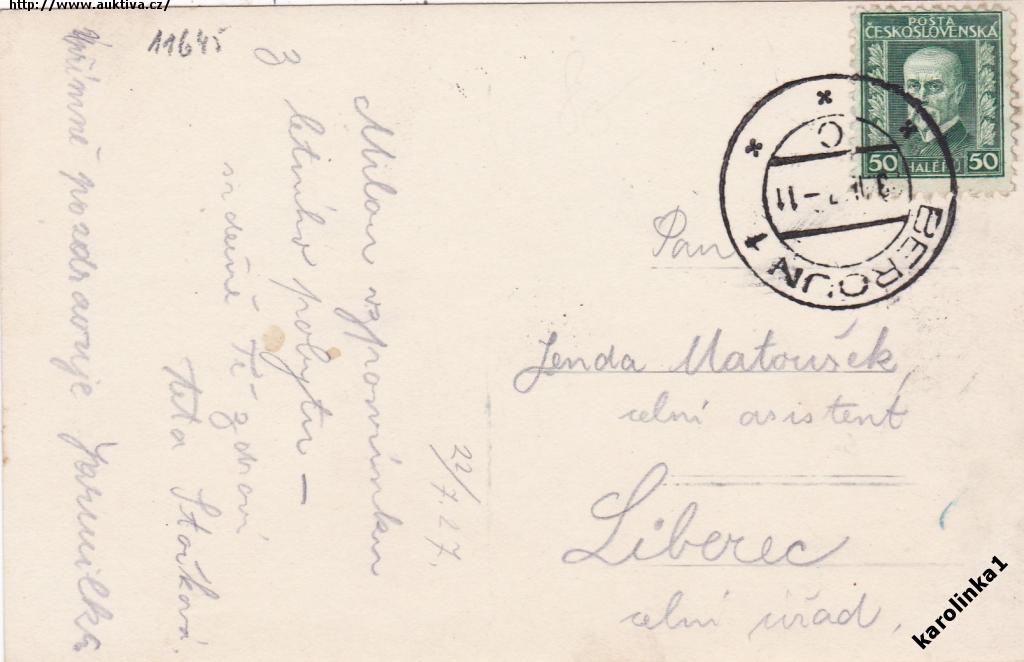 http://www.auktiva.cz/
11645
Milou vzpomínku
z
letního pobytu –
srdečně Tě zdraví
teta Staňková.
Upřímně pozdravuje Jarmilka
22/7.27.
POŠTA
ČESKOSLOVENSKÁ
50 HALÉŘŮ 50
BEROUN 1
Pan
Jenda Matoušek
celní asistent
Liberec
celní úřad.
karolinka1